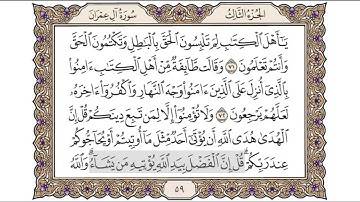 الجزء الثالث
سورة آل عمران
يَٰٓأَهْلَ ٱلْكِتَٰبِ لِمَ تَلْبِسُونَ ٱلْحَقَّ بِٱلْبَٰطِلِ وَتَكْتُمُونَ ٱلْحَقَّ
وَأَنتُمْ تَعْلَمُونَ ٧١ وَقَالَت طَّآئِفَةٌ مِّنْ أَهْلِ ٱلْكِتَٰبِ ءَامِنُوا۟
بِٱلَّذِىٓ أُنزِلَ عَلَى ٱلَّذِينَ ءَامَنُوا۟ وَجْهَ ٱلنَّهَارِ وَٱكْفُرُوٓا۟ ءَاخِرَهُۥ
لَعَلَّهُمْ يَرْجِعُونَ ٧٢ وَلَا تُؤْمِنُوٓا۟ إِلَّا لِمَن تَبِعَ دِينَكُمْ قُلْ إِنَّ
ٱلْهُدَىٰ هُدَى ٱللَّهِ أَن يُؤْتَىٰٓ أَحَدٌ مِّثْلَ مَآ أُوتِيتُمْ أَوْ يُحَآجُّوكُمْ
عِندَ رَبِّكُمْ ۗ قُلْ إِنَّ ٱلْفَضْلَ بِيَدِ ٱللَّهِ يُؤْتِيهِ مَن يَشَآءُ ۗ وَٱللَّهُ
٥٩